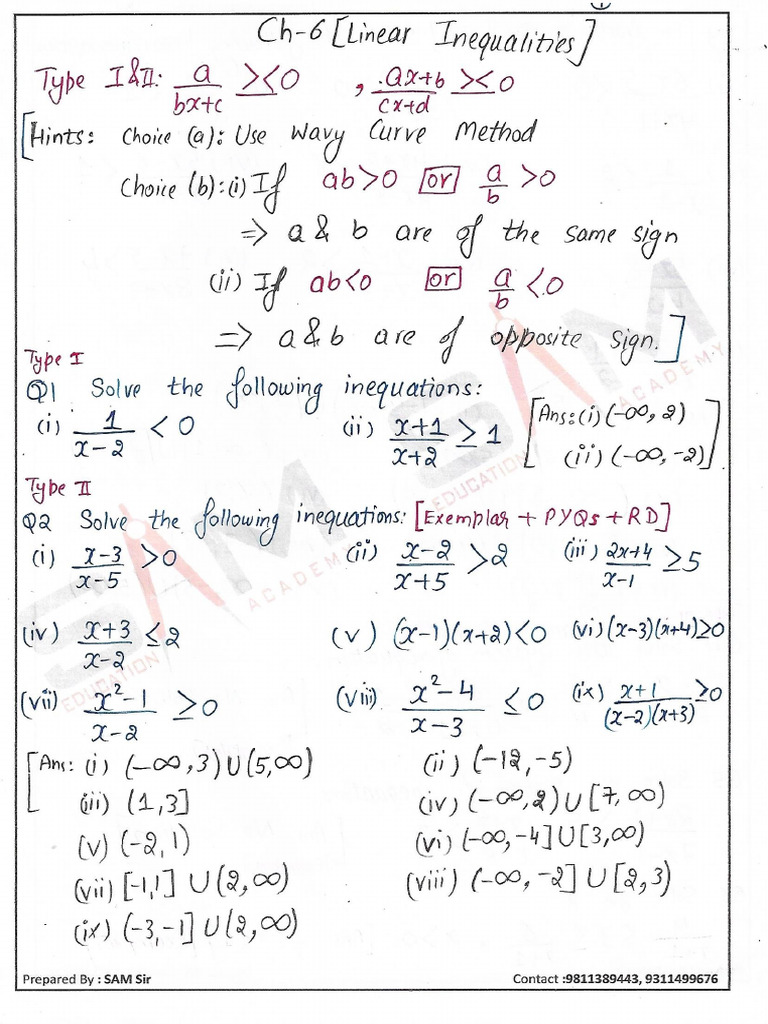 Ch-6 [Linear Inequalities]
Type I & II: a/(bx+c) ><0 , (ax+b)/(cx+d) ><0
[Hints: Choice (a): Use Wavy Curve Method
Choice (b): (i) If ab>0 or a/b >0
⇒ a & b are of the same sign
(ii) If ab<0 or a/b <0
⇒ a & b are of opposite sign.]
Type I
Q1 Solve the following inequations:
(i) 1/(x-2) < 0 (ii) (x+1)/(x+2) ≥ 1 [Ans: (i) (-∞, 2)
(ii) (-∞, -2)]
Type II
Q2 Solve the following inequations: [Exemplar + PYQs + RD]
(i) (x-3)/(x-5) >0 (ii) (x-2)/(x+5) >2 (iii) (2x+4)/(x-1) ≥5
(iv) (x+3)/(x-2) ≤2 (v) (x-1)(x+2)<0 (vi) (x-3)(x+4)≥0
(vii) (x²-1)/(x-2) ≥0 (viii) (x²-4)/(x-3) ≤0 (ix) (x+1)/((x-2)(x+3)) ≥0
[Ans: (i) (-∞,3)∪(5,∞) (ii) (-12,-5)
(iii) (1,3] (iv) (-∞,2)∪[7,∞)
(v) (-2,1) (vi) (-∞,-4]∪[3,∞)
(vii) [-1,1] ∪(2,∞) (viii) (-∞,-2] ∪[2,3)
(ix) (-3,-1] ∪(2,∞)
SAM
EDUCATION ACADEMY
SAM
EDUCATION ACADEMY
Prepared By : SAM Sir Contact :9811389443, 9311499676